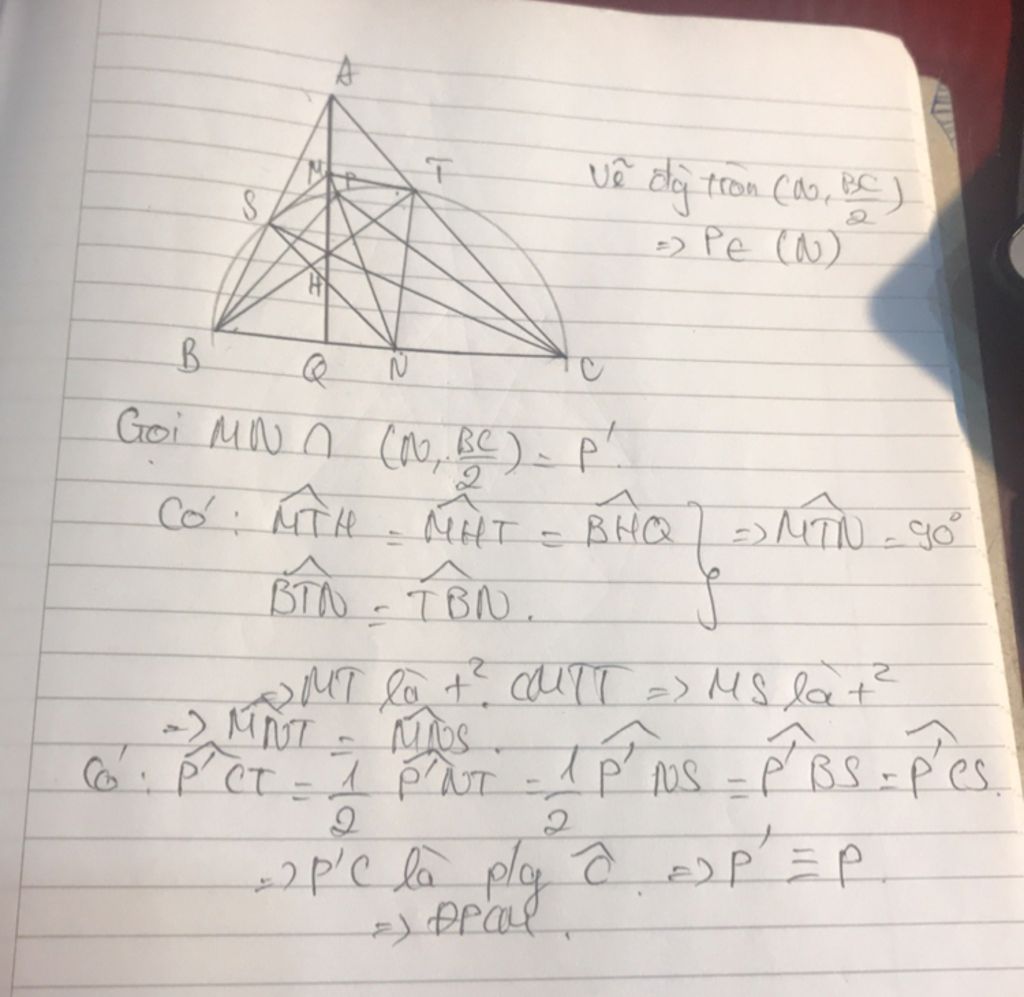 A
M
P
T
S
H
B
Q
N
C
Vẽ đg tròn (N, BC/2)
=> P ∈ (N)
Gọi MN ∩ (N, BC/2) = P'.
Có: ∠MTH = ∠MHT = ∠BHQ } => ∠MTN = 90°
∠BTN = ∠TBN.
=> MT là t². CMTT => MS là t²
=> ∠MNT = ∠MNS.
Có: ∠P'CT = 1/2 ∠P'NT = 1/2 ∠P'NS = ∠P'BS = ∠P'CS.
=> P'C là p/g Ĉ. => P' ≡ P.
=> ĐPCM.